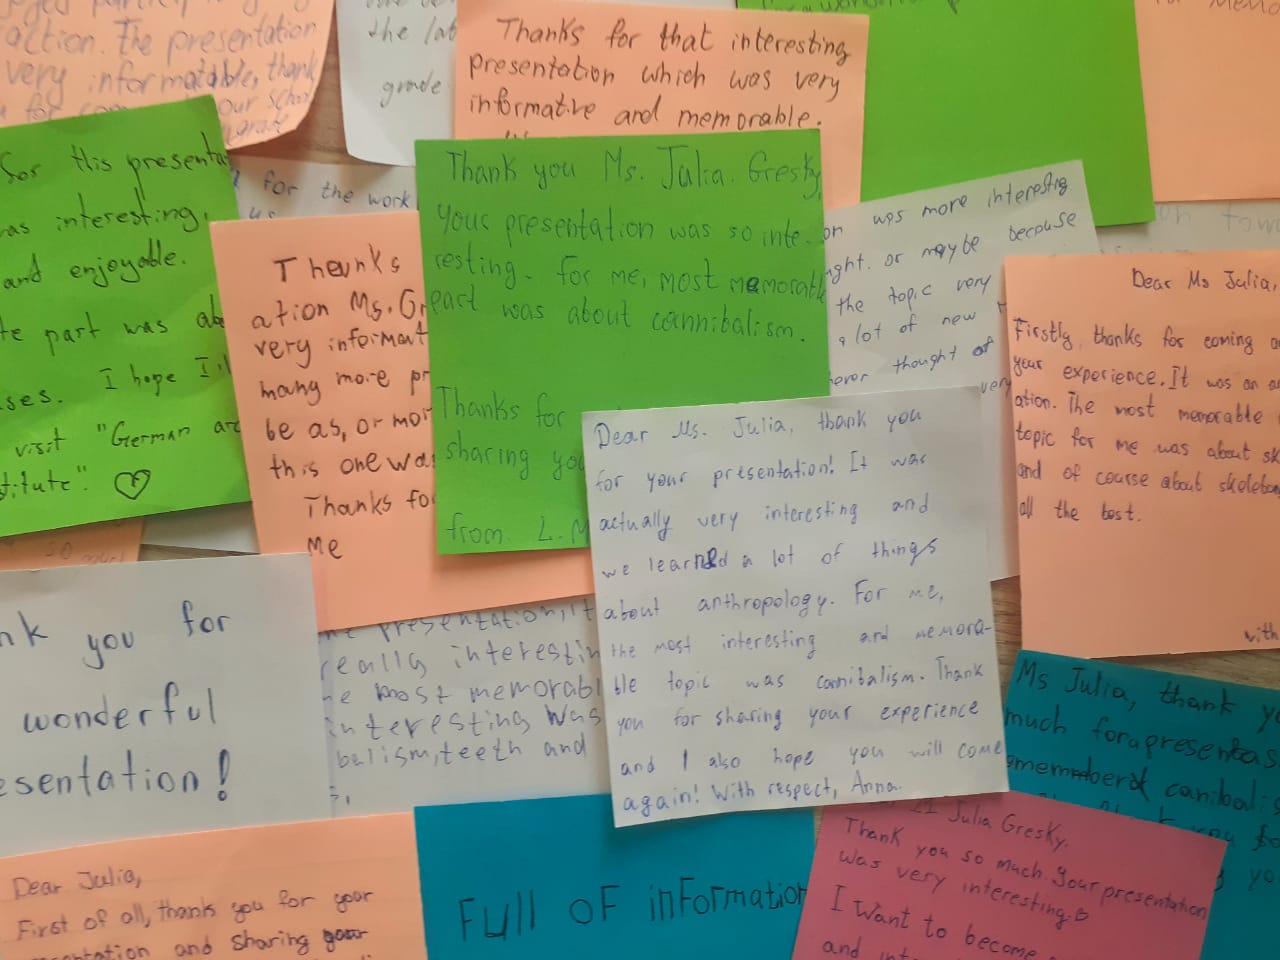 action. The presentation
very informatable, thank
our school
the lat
grade
Thanks for that interesting
presentation which was very
informative and memorable.
for this presenta
as interesting,
and enjoyable.
te part was ab
ses. I hope I'l
visit "German arc
titute". ♡
for the work
us
Theunks
ation Ms. Gr
very informat
many more pr
be as, or mor
this one wa
Thanks fo
me
Thank you Ms. Julia. Gresky,
your presentation was so inte-
resting. For me, most memorable
part was about cannibalism.
Thanks for
sharing you
from. L. M
on was more interesting
ght. or maybe because
the topic very
a lot of new
never thought of
very
Dear Ms Julia,
Firstly, thanks for coming a
your experience. It was an a
ation. The most memorable
topic for me was about sk
and of course about skeleton
all the best.
with
Dear Ms. Julia, thank you
for your presentation! It was
actually very interesting and
we learned a lot of things
about anthropology. For me,
the most interesting and memora-
ble topic was cannibalism. Thank
you for sharing your experience
and I also hope you will come
again! With respect, Anna.
nk you for
wonderful
esentation!
presentation, it
really interestin
he most memorabl
interesting was
balism, teeth and
Ms Julia, thank yo
much for a presentas
memmberd canibali
Dear Julia,
First of all, thank you for your
entation and sharing your
Full of information
Julia Gresky,
Thank you so much. Your presentation
was very interesting.
I want to become
and int